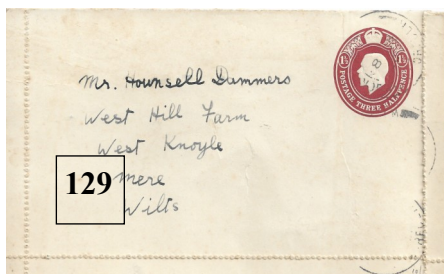 Mr. Hounsell Dummers
West Hill Farm
West Knoyle
Mere
Wilts
129
1½ 1½
POSTAGE THREE HALFPENCE